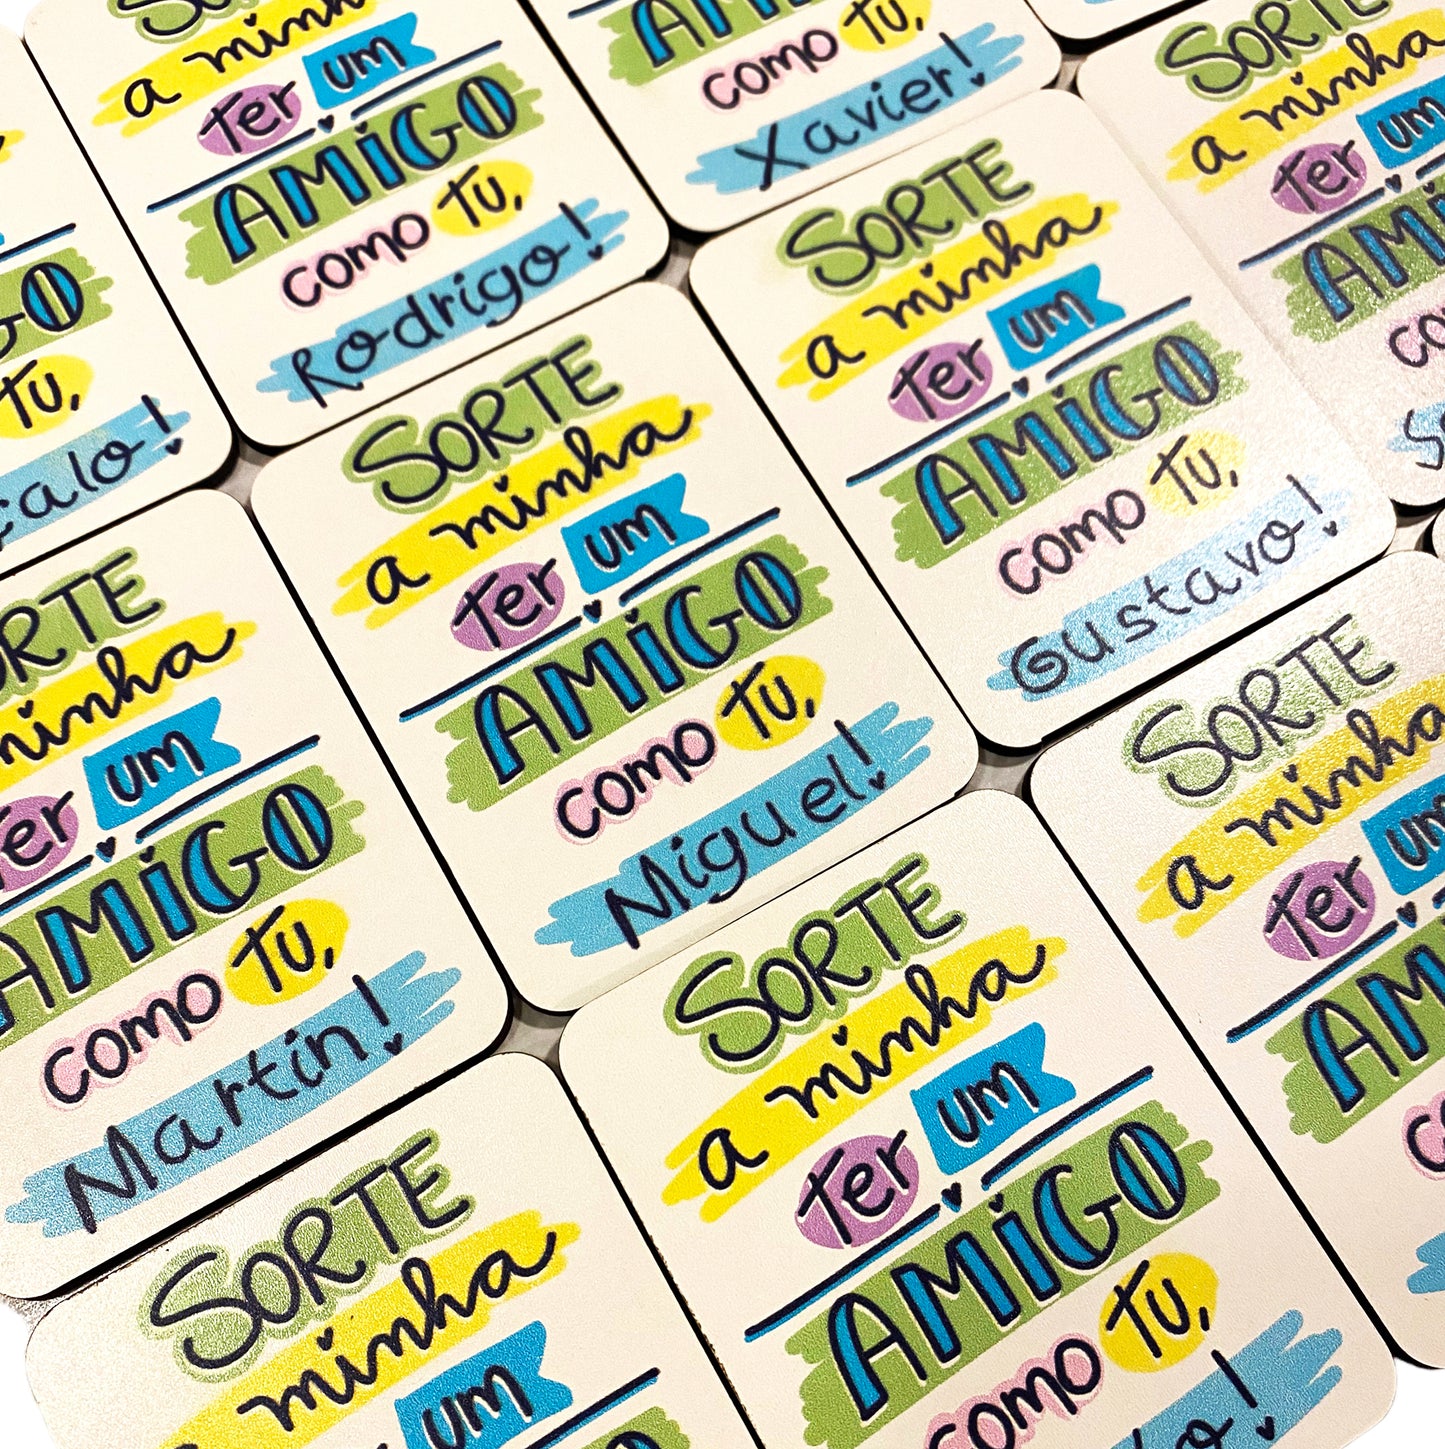 SORTE
a minha
Ter um
AMIGO
como Tu,
Rodrigo!
AMIGO
como Tu,
Xavier!
SORTE
a minha
Ter um
Tu,
SORTE
a minha
Ter um
AMIGO
como Tu,
Miguel!
SORTE
a minha
Ter um
AMIGO
como Tu,
Gustavo!
minha
Ter um
AMIGO
como Tu,
Martin!
SORTE
a minha
Ter um
AMIGO
como Tu,
SORTE
a minha
Ter um
SORTE
minha
um